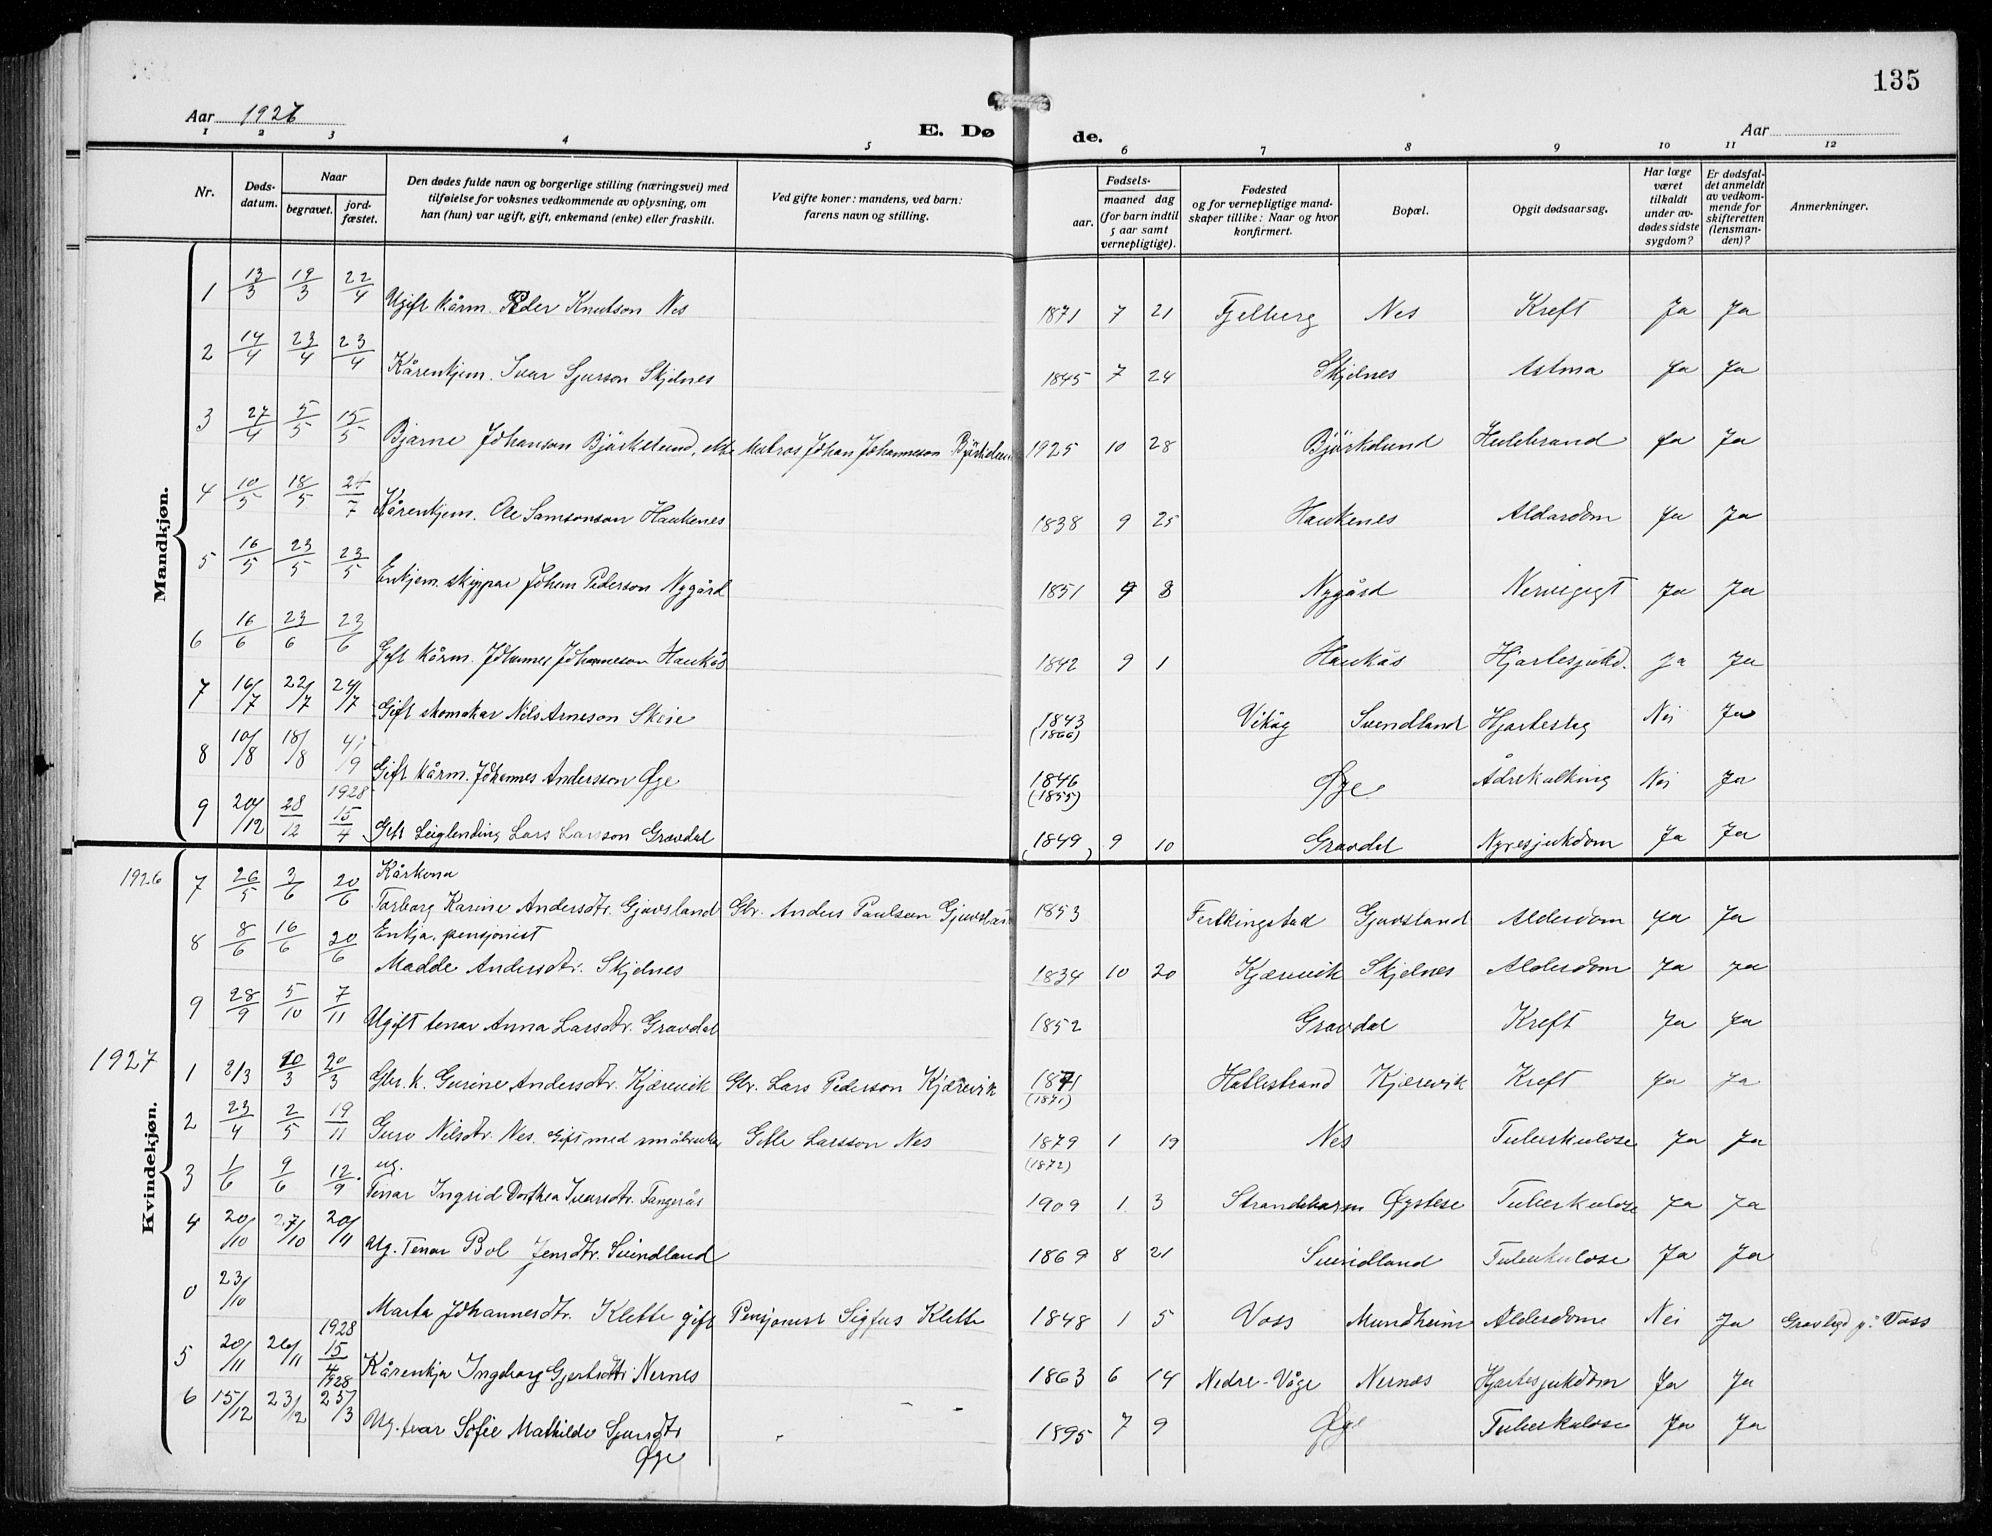 135
Aar 1927
E. Dø
de.
Aar
1 2 3 4 5 6 7 8 9 10 11 12
Nr.
Døds-
datum.
Naar
begravet.
jord-
fæstet.
Den dødes fulde navn og borgerlige stilling (næringsvei) med
tilføielse for voksnes vedkommende av oplysning, om
han (hun) var ugift, gift, enkemand (enke) eller fraskilt.
Ved gifte koner: mandens, ved barn:
farens navn og stilling.
Fødsels-
aar.
maaned dag
(for barn indtil
5 aar samt
vernepligtige).
Fødested
og for vernepligtige mand-
skaper tillike: Naar og hvor
konfirmert.
Bopæl.
Opgit dødsaarsag.
Har læge
været
tilkaldt
under av-
dødes sidste
sygdom?
Er dødsfal-
det anmeldt
av vedkom-
mende for
skifteretten
(lensman-
den)?
Anmerkninger.
Mandkjøn.
1 13/3 19/3 22/4 Ugift kårm. Peder Knutson Nes 1871 7 21 Fjelberg Nes Kreft Ja Ja
2 14/4 23/4 23/4 Kårenkjem. Ivar Sjurson Skjelnes 1845 7 24 Skjelnes Astma Ja Ja
3 27/4 5/5 15/5 Bjarne Johanson Björkelund, Matros Johan Johanneson 1925 10 28 Björkelund Ja Ja
4 10/5 18/5 /7 Kårenkjem. Ole Samsonson Haukenes 1838 9 25 Haukenes Aldersdom Ja Ja
5 16/5 23/5 23/5 Enkjem. skippar Johan Pederson Nygård 1851 9 8 Nygård Nervegigt Ja Ja
6 16/6 23/6 23/6 Gift kårm. Johannes Johanneson Haukås 1842 9 1 Haukås Hjartesjukd. Ja Ja
7 16/7 22/7 24/7 Gift skomakar Nils Arneson Skeie 1843 (1866) Vikøy Svendland Hjarteslag Nei Ja
8 10/8 18/8 4/9 Gift kårm. Johannes Andersson Øye 1846 (1855) Øye Ådrekalking Nei Ja
1928
9 20/12 28/12 15/4 Gift Leiglending Lars Larsson Gravdal 1849 9 10 Gravdal Nyresjukdom Ja Ja
Kvindekjøn.
1926
Kårkona
7 26/5 3/6 20/6 Torborg Karine Andersdtr. Gjuvsland Gbr. Anders Paulson Gjuvsland 1853 Ferkingstad Gjuvsland Aldersdom Ja Ja
Enkja, pensjonist
8 8/6 16/6 20/6 Madde Andersdtr. Skjelnes 1834 10 20 Kjærevik Skjelnes Aldersdom Ja Ja
9 28/9 5/10 7/11 Ugift tenar Anna Larsdtr. Gravdal 1852 Gravdal Kreft Ja Ja
1927
1 8/3 10/3 20/3 Gbr.k. Gurine Andersdtr. Kjærevik Gbr. Lars Pederson Kjærevik 1871 (1871) Hatlestrand Kjærevik Kreft Ja Ja
2 23/4 2/5 19/11 Guro Nilsdtr. Nes. Gift med småbruker Gitle Larsson Nes 1879 (1872) 1 19 Nes Tuberkulose Ja Ja
ug.
3 1/6 9/6 12/9 Tenar Ingrid Dorthea Ivarsdtr. Tangerås 1909 1 3 Strandebarm Øystese Tuberkulose Ja Ja
4 20/10 27/10 20/11 Ug. Tenar Bol Jensdtr. Svendland 1869 8 21 Svendland Tuberkulose Ja Ja
0 23/10 Marta Johannesdtr. Klette gift Pensjonist Sigfus Klette 1848 1 5 Voss Mundheim Aldersdom Nei Ja Gravlagd på Voss
1928
5 20/11 26/11 15/4 Kårenkja Ingeborg Gjertsdtr. Nernes 1863 6 14 Nedre-Våge Nernes Hjartesjukdom Ja Ja
1928
6 15/12 23/12 25/3 Ug. tvar Sofie Mathilde Sjursdtr. Øye 1895 7 9 Øye Tuberkulose Ja Ja